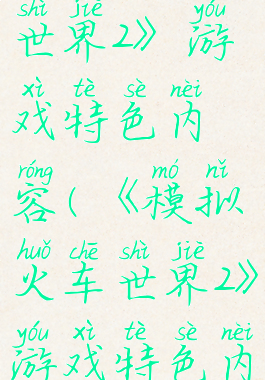 shì jiè yóu
世界2》 游
xì tè sè nèi
戏特色内
róng mó nǐ
容(《模拟
huǒ chē shì jiè
火车世界2》
yóu xì tè sè nèi
游戏特色内